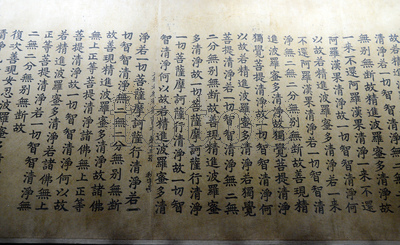 無別無斷故精進波羅蜜多清淨故
一來不還阿羅漢果清淨一來不還
阿羅漢果清淨故一切智智清淨何
以故若精進波羅蜜多清淨若一來
不還阿羅漢果清淨若一切智智清
淨無二無二分無別無斷故善現精
進波羅蜜多清淨故獨覺菩提清淨
獨覺菩提清淨故一切智智清淨何
以故若精進波羅蜜多清淨若獨覺
菩提清淨若一切智智清淨無二無
二分無別無斷故善現精進波羅蜜
多清淨故一切菩薩摩訶薩行清淨
一切菩薩摩訶薩行清淨故一切智
智清淨何以故若精進波羅蜜多清
淨若一切菩薩摩訶薩行清淨若一
切智智清淨無二無二分無別無斷
故善現精進波羅蜜多清淨故諸佛
無上正等菩提清淨諸佛無上正等
菩提清淨故一切智智清淨何以故
若精進波羅蜜多清淨若諸佛無上
正等菩提清淨若一切智智清淨無
二無二分無別無斷故
復次善現安忍波羅蜜多